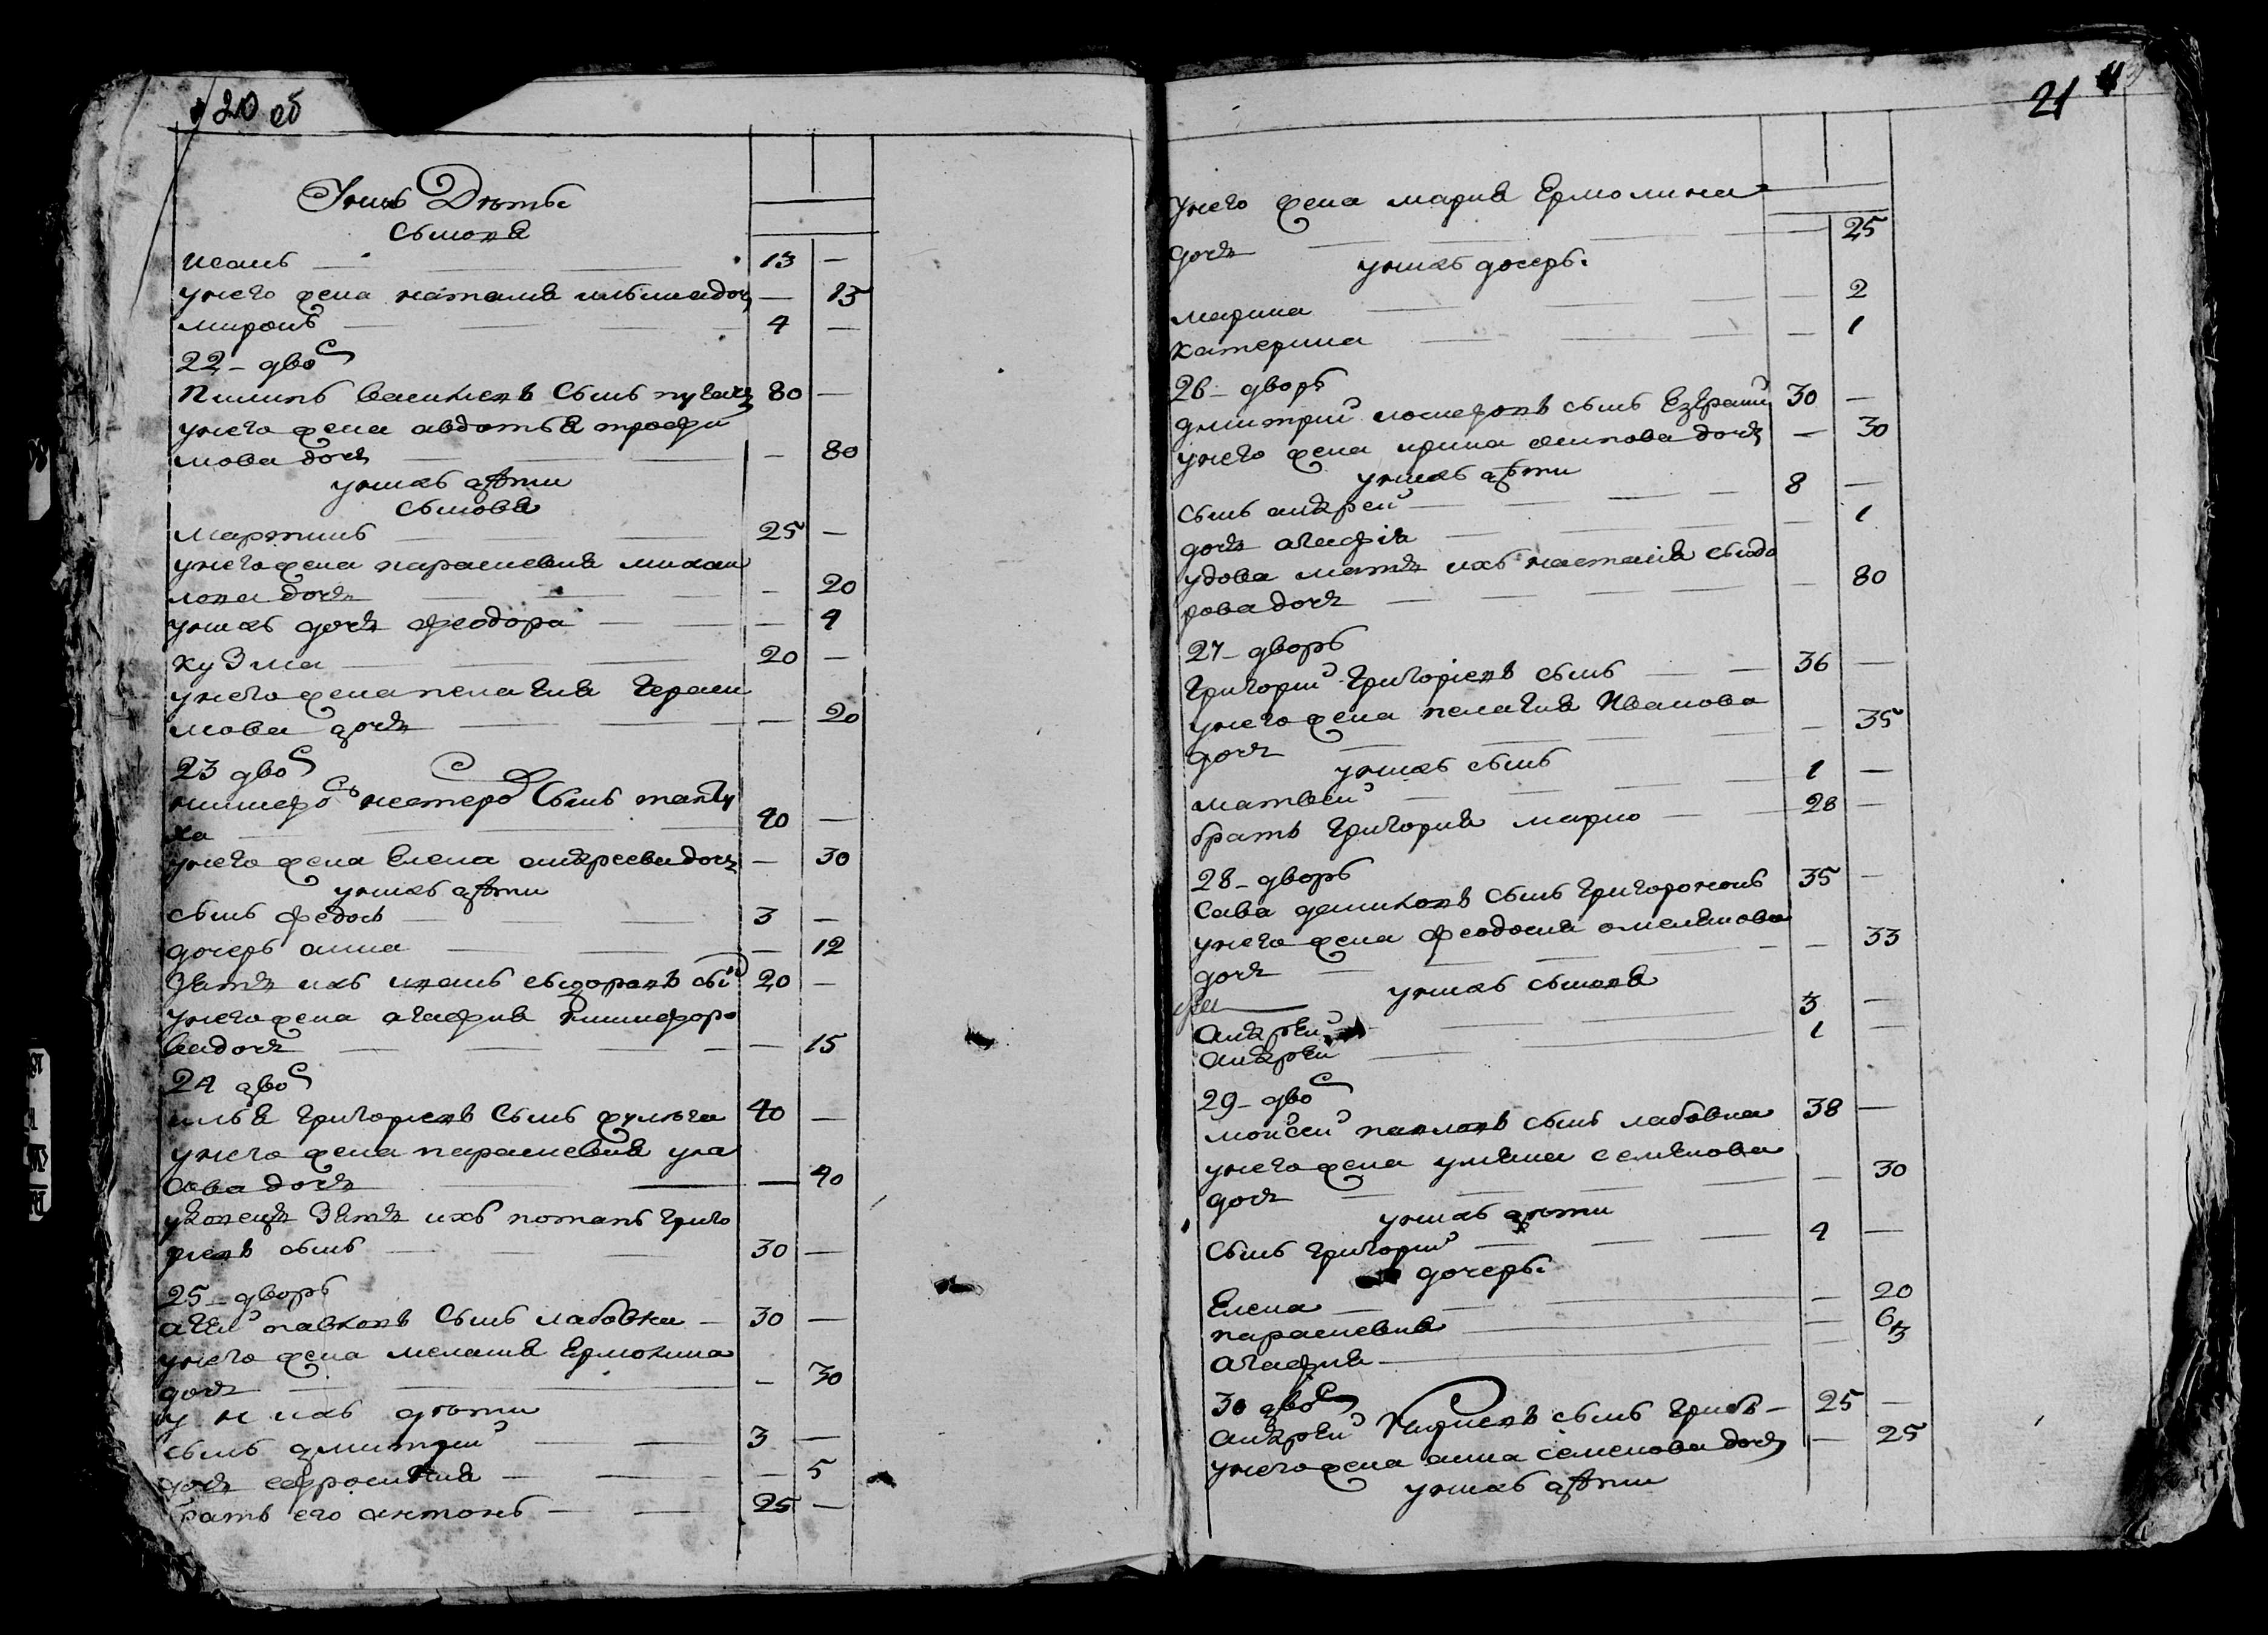 20 об
У нихъ Дѣти
Сынов я
Иванъ — 13 —
у него жена наталия ильина доч — 15
миронъ — 4 —
22 – дво
Пилипъ васильевъ Сынъ пугач 80 —
у него жена авдотья трофи
мова дочь — 80
у нихъ дѣти
Сыновя
мартинъ — 25 —
у него жена параскевия михаи
лова дочь — 20
у нихъ дочь феодора — 4
кузма — 20 —
у него жена пелагия гераси
мова дочь — 20
23 дво
никифо нестеро Сынъ
ха — 40 —
у него жена Елена андреева дочь — 30
у нихъ дѣти
сынъ федосъ — 3 —
дочерь анна — 12
Зять ихъ иванъ сыдоровъ сы 20 —
у него жена агафия никифоро
ва дочь — 15
24 дво
илья григориевъ Сынъ 40 —
у него жена параскевия ула
сова дочь — 40
удовецъ Зять ихъ потапъ григо
риевъ сынъ — 30 —
25 – дворъ
агей павловъ Сынъ лабовка — 30 —
у него жена мелания Ермолина
дочь — 30
у нихъ дѣти
сынъ дмитрий — 3 —
дочь ефросиния — 5
братъ его антонъ — 25 —
21
у него жена мария Ермолина
дочь — 25
у нихъ дочерь
марина — 2
катерина — 1
26 – дворъ
дмитрий иосифовъ сынъ 30 —
у него жена ирина осипова дочь — 30
у нихъ дѣти
сынъ андрей — 8 —
дочь агафія — 1
удова мать ихъ настасія сыдо
рова дочь — 80
27 – дворъ
григорий григоріевъ сынъ — 36 —
у него жена пелагия Иванова
дочь — 35
у нихъ сынъ
матвей — 1 —
братъ григория марко — 28 —
28 – дворъ
Сава демиховъ сынъ григоровонъ 35 —
у него жена феодосия омелянова
дочь — 33
у нихъ сыновя
андрей — 3 —
андрей — 1 —
29 – дво
моисей павловъ сынъ лабовка 38 —
у него жена уляна семенова
дочь — 30
у нихъ дѣти
сынъ григорий — 4 —
дочерь
Елена — 20
параскевия — 6
агафия — 3
30 дво
андрей кириевъ сынъ грибъ — 25 —
у него жена анна семенова дочь — 25
у нихъ дѣти